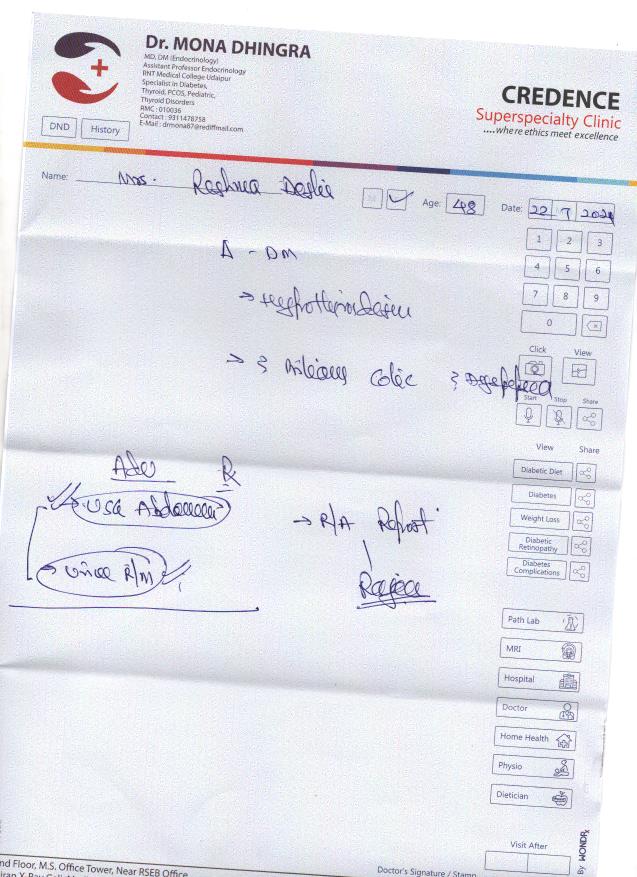 Dr. MONA DHINGRA
MD, DM (Endocrinology)
Assistant Professor Endocrinology
RNT Medical College Udaipur
Specialist in Diabetes,
Thyroid, PCOS, Pediatric,
Thyroid Disorders
RMC : 010036
Contact : 9311478758
E-Mail : drmona87@rediffmail.com
CREDENCE
Superspecialty Clinic
....where ethics meet excellence
DND History
Name: Mrs. M Age: 48 Date: 22 7 2024
1 2 3
4 5 6
7 8 9
0
Δ - DM
→
→ ? Colic ?
Click View
Start Stop Share
View Share
Diabetic Diet
Diabetes
Weight Loss
Diabetic
Retinopathy
Diabetes
Complications
Adv Rx
→ USG Abdomen
→ R/A Report
→ Urine R/M
Path Lab
MRI
Hospital
Doctor
Home Health
Physio
Dietician
Visit After
By WONDRx
nd Floor, M.S. Office Tower, Near RSEB Office
Doctor's Signature / Stamp